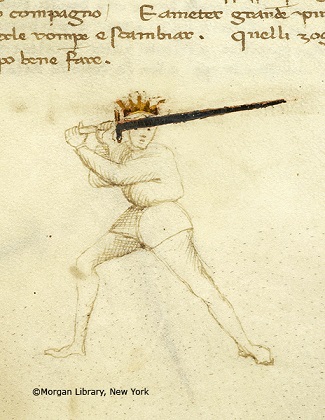 compagno E a meter grande pu
rompe e scambiar. quelli zog
po bene fare.
©Morgan Library, New York